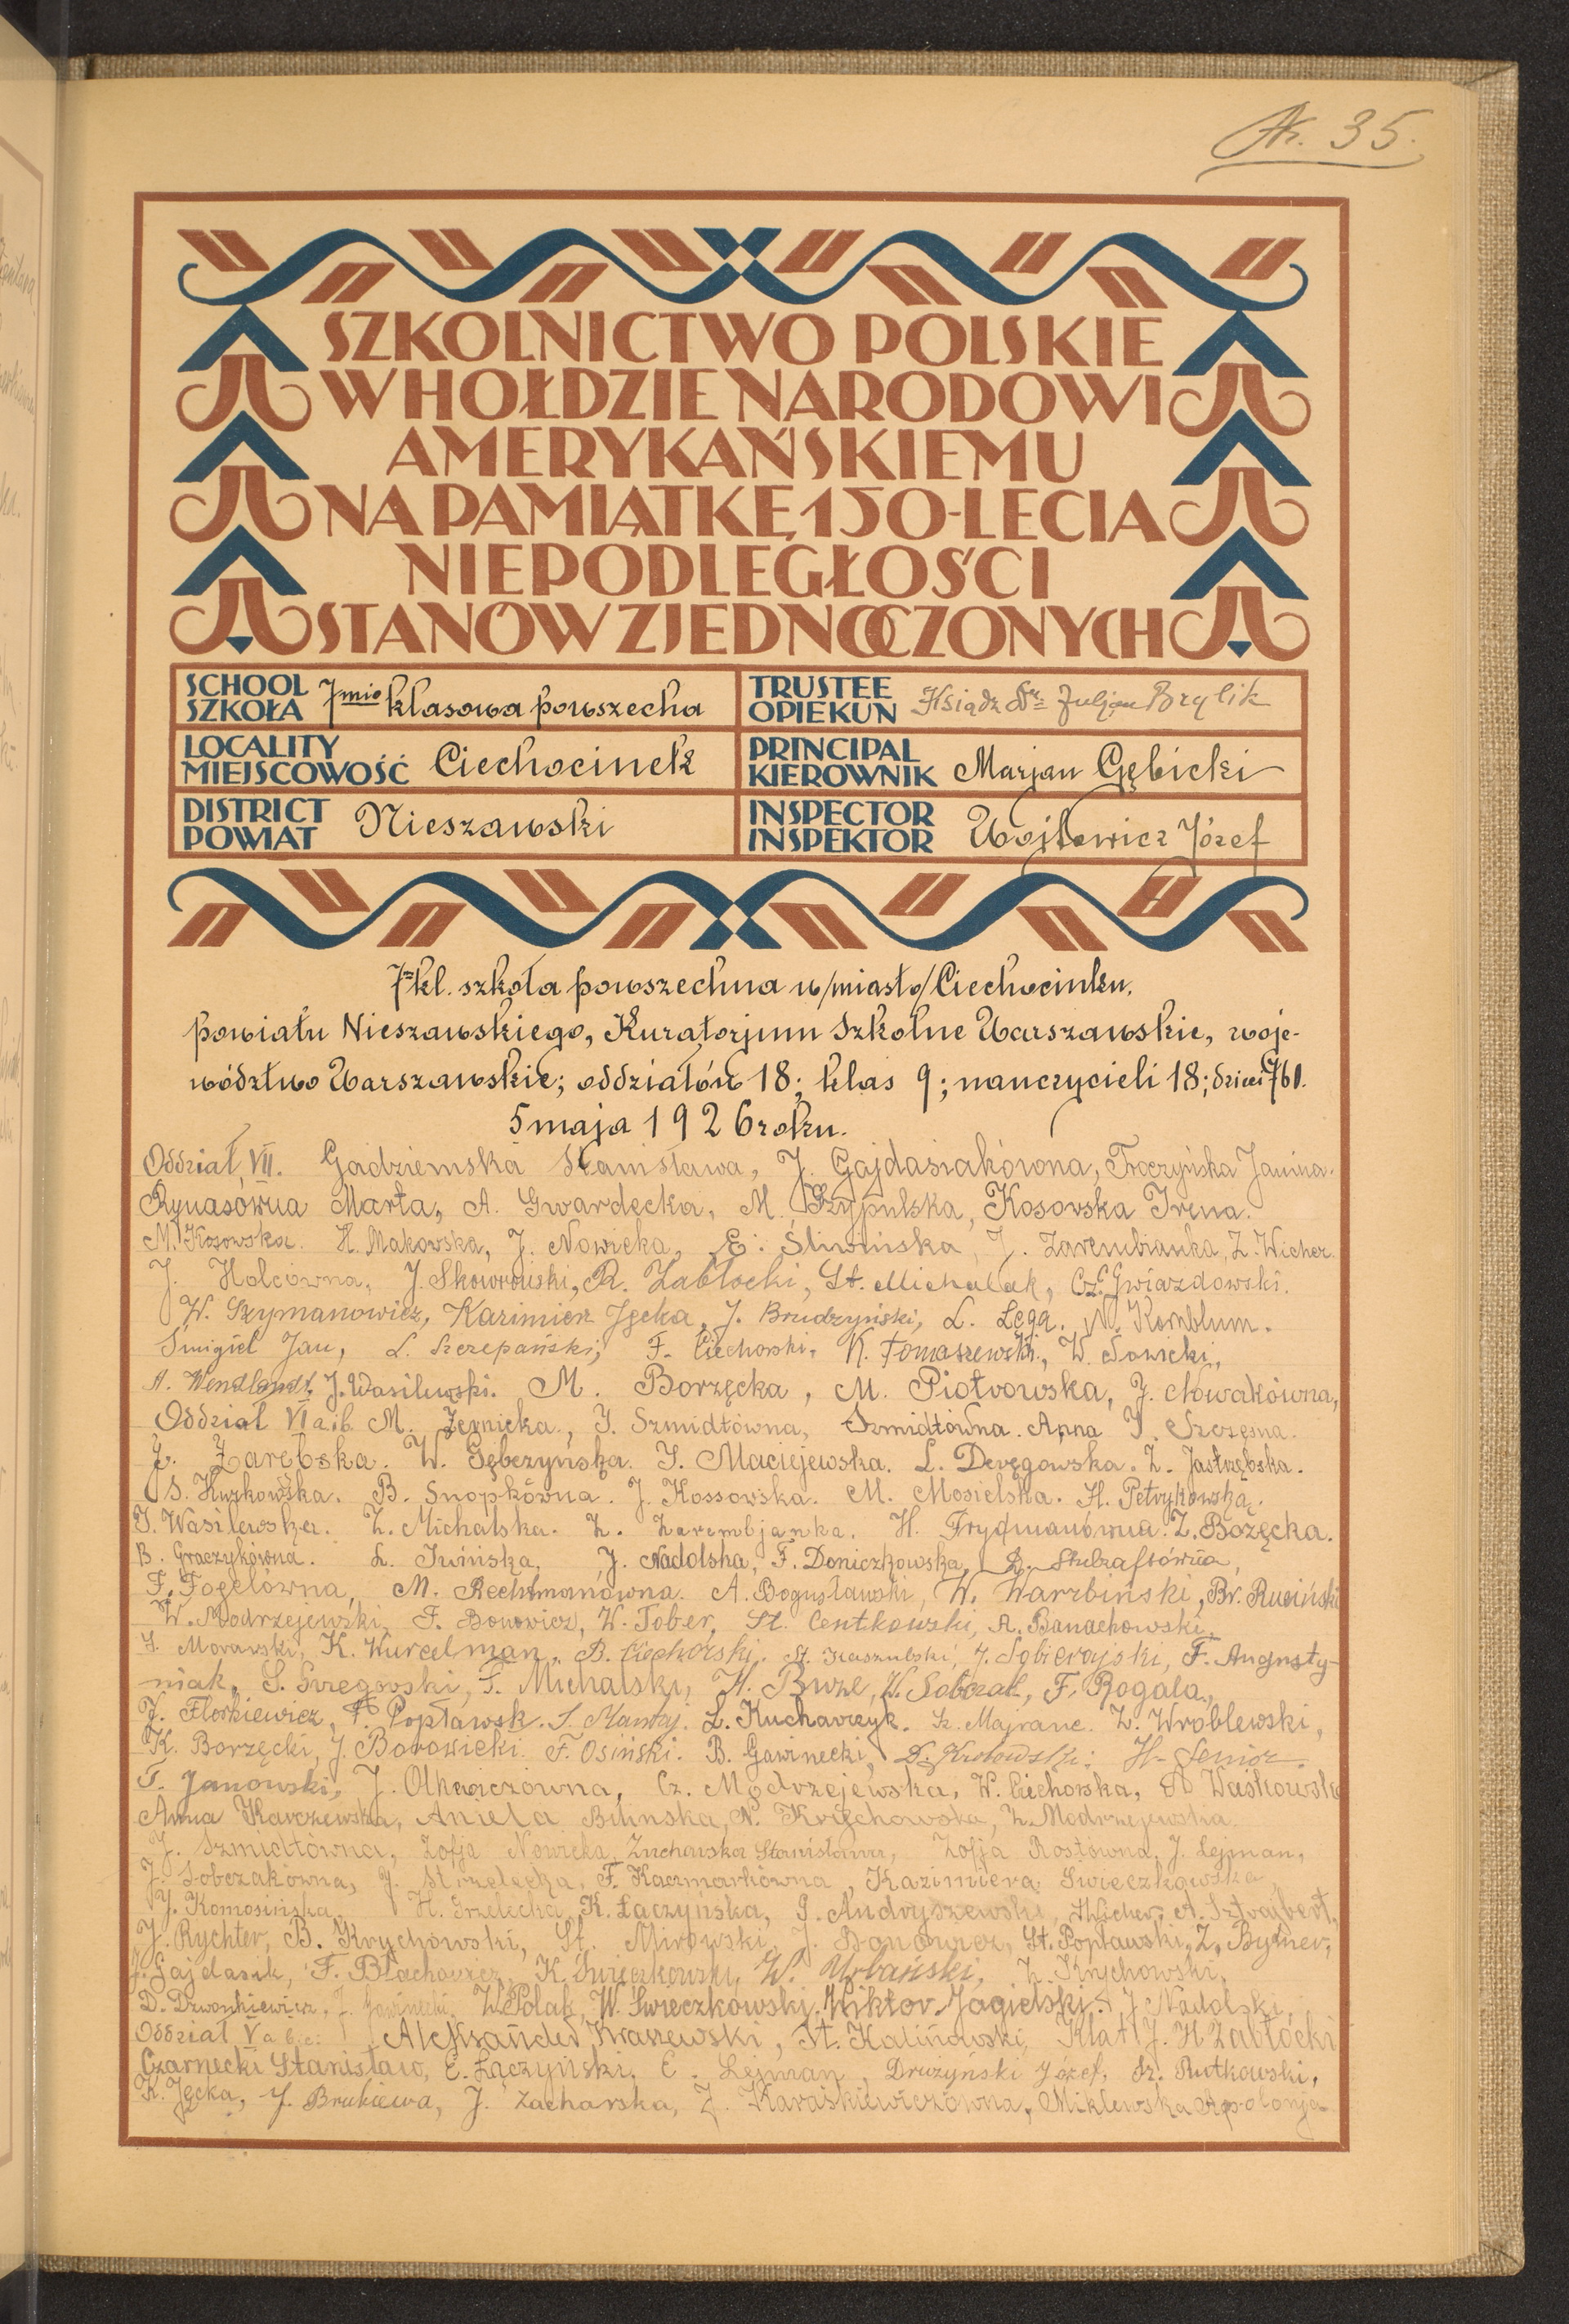 Nr. 35.
SZKOLNICTWO POLSKIE
W HOŁDZIE NARODOWI
AMERYKAŃSKIEMU
NA PAMIĄTKĘ 150-LECIA
NIEPODLEGŁOŚCI
STANÓW ZJEDNOCZONYCH
SCHOOL SZKOŁA 7mio klasowa powszecha
TRUSTEE OPIEKUN Ksiądz Dr Juljan Brylik
LOCALITY MIEJSCOWOŚĆ Ciechocinek
PRINCIPAL KIEROWNIK Marjan Gębicki
DISTRICT POWIAT Nieszawski
INSPECTOR INSPEKTOR Wojtowicz Józef
7 kl. szkoła powszechna w /miasto/ Ciechocinku,
powiatu Nieszawskiego, Kuratorjum Szkolne Warszawskie, woje-
wództwo Warszawskie; oddziałów 18; klas 9; nauczycieli 18; dzieci 760.
5 maja 1926 roku.
Oddział VII. Gadziemska Stanisława, J. Gajdasiakówona, Troczyńska Janina.
Rynasówna Marta, A. Gwardecka, M. Grypulska, Kosowska Irena.
M. Kosowska. H. Makowska, J. Nowicka, E. Śliwińska, J. Zarembianka, Z. Wicher.
J. Holcówna, J. Skowroński, R. Zabłocki, St. Michalak, Cz. Gwiazdowski.
W. Szymanowicz, Kazimierz Jęcka, J. Brudzyński, L. Lega. N. Kornblum.
Śmigiel Jan, L. Szczepański, F. Ciechorski, K. Tomaszewski, W. Sawicki,
A. Wendlandt, J. Wasilewski. M. Borzęcka, M. Piotrowska, J. Nowakówna,
Oddział VI a i b. M. Żernicka, J. Szmidtówna, Szmidtówna Anna J. Szczęsna.
Z. Zarębska. W. Gębczyńska. J. Maciejewska. L. Deręgowska. Z. Jastrzębska.
S. Kurkowska. B. Snopkówna. J. Kossowska. M. Mosielska. H. Petrykowska.
J. Wasilewska. Z. Michalska. Z. Zarembjanka. H. Frydmanówna. Z. Bożęcka.
B. Graczykówna. L. Iwińska, J. Nadolska, F. Doniczkowska,
F. Fogelówna, M. Rechtmanówna. A. Bogusławski, W. Warzbiński, Br. Ruciński
W. Modrzejewski, F. Bonowicz, W. Tober, St. Centkowski, A. Banachowski,
J. Morawski, K. Kurcelman, B. Ciechorski. St. Kaszubski, J. Sobierajski, F. Augusty-
niak, S. Gręgowski, T. Michalski, W. Sobczak, F. Rogala,
J. Florkiewicz, F. Popławsk. L. Kucharczyk. Majranc. W. Wroblewski,
K. Borzęcki, J. Borowicki. F. Osiński. B. Gawinecki, H. Senior.
T. Janowski, J. Olkwiczówna, Cz. Modrzejewska, W. Ciechorska, A. Waśkowska
Anna Karczewska, Aniela Bilinska, N. Krychowska, Z. Modrzejewska
J. Szmidtówna, Zofja Nowicka, Zuchowska Stanisława, Zofja Rostówna, J. Lejman,
J. Sobczakówna, J. Strzelecka, F. Kaczmarkówna, Kazimiera Swieczkowska
J. Komosińska, H. Grzelecka, K. Łaczyńska, G. Andryszewski, Wicher, A. Sztrajbert,
J. Rychter, B. Krychowski, St. Mirowski, J. Bonowicz, St. Popławski, Z. Bytner,
J. Gajdasik, F. Blachowicz, K. Swieczkowski, W. Urbański, Z. Krychowski,
D. Dzwonkiewicz, J. Gawinecki, W. Polak, W. Swieczkowski, Wiktor Jagielski. J. Nadolski,
Oddział V a b c: Aleksander Kraszewski, St. Kalinowski, Klat J. H. Zabłócki
Czarnecki Stanisław, E. Łączyński, C. Lejman, Drużyński Józef, Fr. Rutkowski,
K. Jęcka, J. Brukiewa, J. Zacharska, Z. Karaśkiewiczówna, Miklewska Apolonja